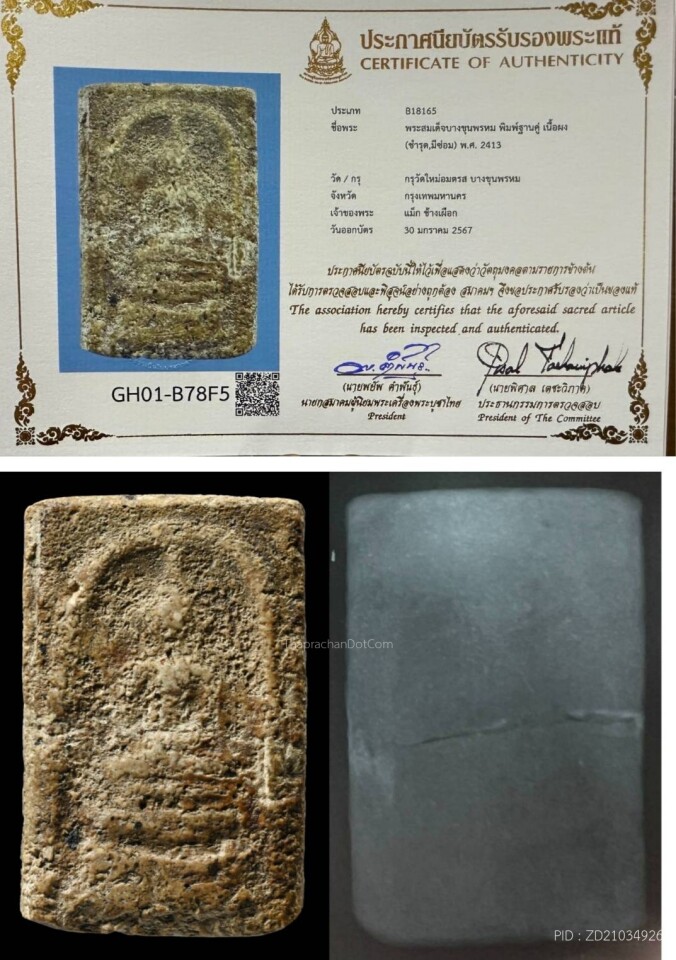 ประกาศนียบัตรรับรองพระแท้
CERTIFICATE OF AUTHENTICITY
ประเภท B18165
ชื่อพระ พระสมเด็จบางขุนพรหม พิมพ์ฐานคู่ เนื้อผง
(ชำรุด,มีซ่อม) พ.ศ. 2413
วัด / กรุ กรุวัดใหม่อมตรส บางขุนพรหม
จังหวัด กรุงเทพมหานคร
เจ้าของพระ แม็ก ช้างเผือก
วันออกบัตร 30 มกราคม 2567
ประกาศนียบัตรฉบับนี้ให้ไว้เพื่อแสดงว่าวัตถุมงคลตามรายการข้างต้น
ได้รับการตรวจสอบและพิสูจน์อย่างถูกต้อง สมาคมฯ จึงขอประกาศรับรองว่าเป็นของแท้
The association hereby certifies that the aforesaid sacred article
has been inspected and authenticated.
GH01-B78F5
(นายพยัพ คำพันธุ์)
นายกสมาคมผู้นิยมพระเครื่องพระบูชาไทย
President
(นายพิศาล เตชะวิภาค)
ประธานกรรมการตรวจสอบ
President of The Committee
ThaprachanDotCom
PID : ZD21034926